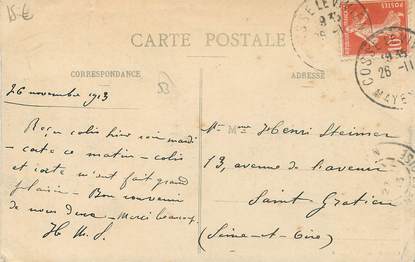 15.€
CARTE POSTALE
CORRESPONDANCE
ADRESSE
53
26 novembre 1913
Reçu colis hier soir mardi
- carte ce matin - colis
et carte m'ont fait grand
plaisir - Bon souvenir
de nous deux - Merci beaucoup.
H M S.
Mme Henri Steimer
13, avenue de l'avenir
Saint Gratien
(Seine-et-Oise)
POSTES
10
COSSÉ LE VIVIEN
19 35
26 -11
MAYENNE